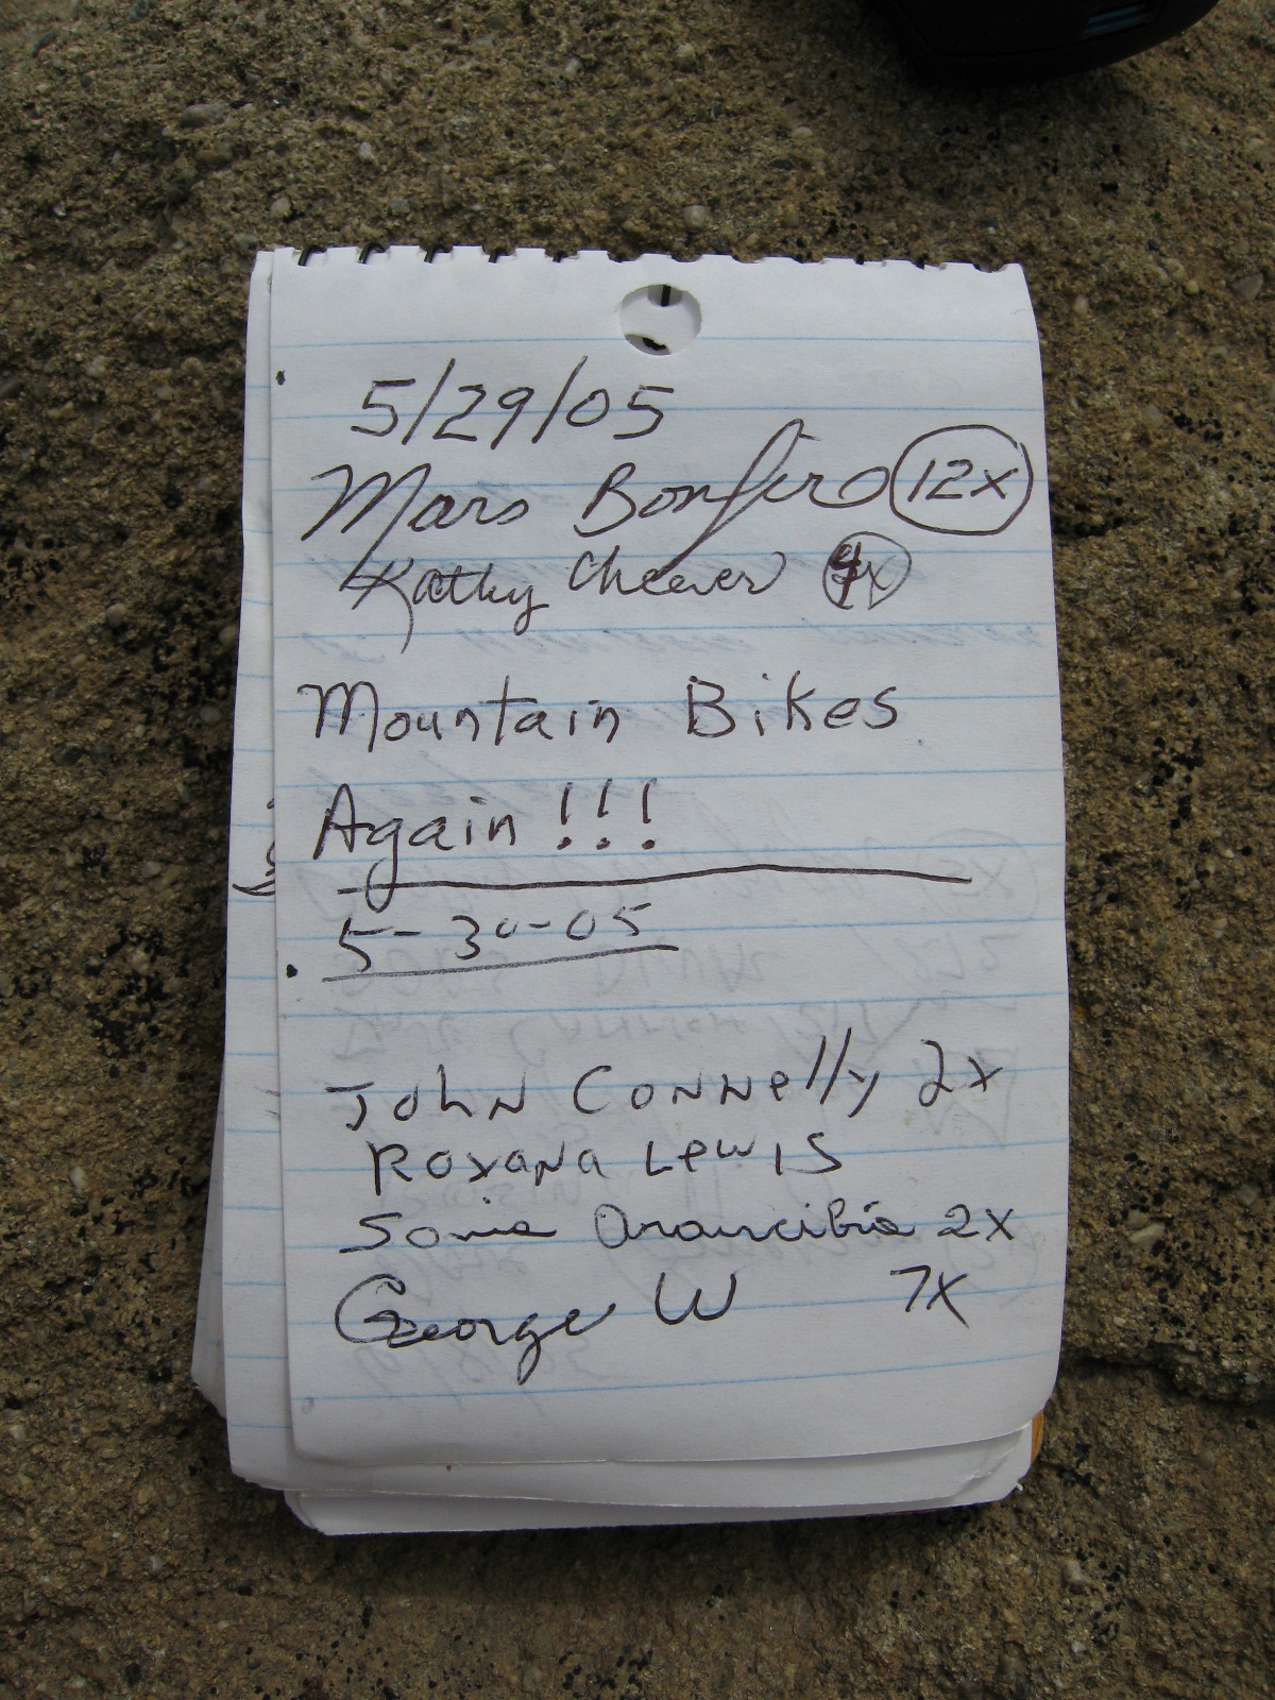 5/29/05
Mars Bonfire 12x
Kathy Cheever 4x
Mountain Bikes
Again !!!
5-30-05
John Connelly 2x
Roxana Lewis
Sonia Arancibia 2x
George W 7x